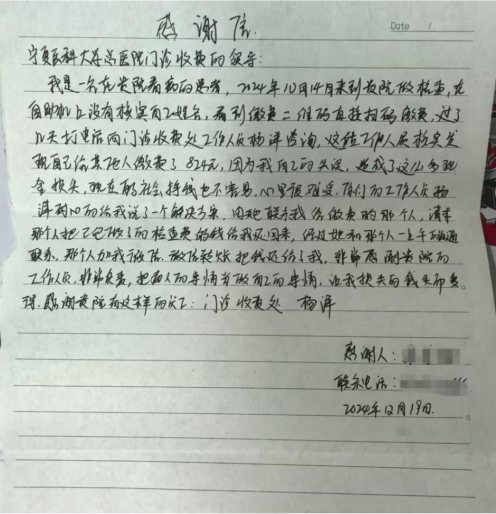 感谢信
Date /
宁夏医科大学总医院门诊收费的领导:
我是一名在贵院看病的患者,2024年10月14日来到贵院做检查,在
自助机上没有核实自己姓名,看到缴费二维码直接扫码缴费,过了
几天打电话向门诊收费处工作人员杨洋咨询,这位工作人员核实发
现自己给其他人缴费了824元,因为我自己的失误,造成了这么多现
金损失,现在的社会挣钱也不容易,心里很难受,你们的工作人员杨
洋耐心的给我说了一个解决方案,由她联系我给缴费的那个人,请求
那个人把已做了的检查费的钱给我还回来,经过她和那个人一上午沟通
联系,那个人加我微信,微信转账把钱还给了我,非常感谢贵院的
工作人员,非常负责,把病人的事情当做自己的事情,让我损失的钱失而复
得.感谢贵院有这样的员工:门诊收费处 杨洋
感谢人:
联系电话:
2024年12月19日.